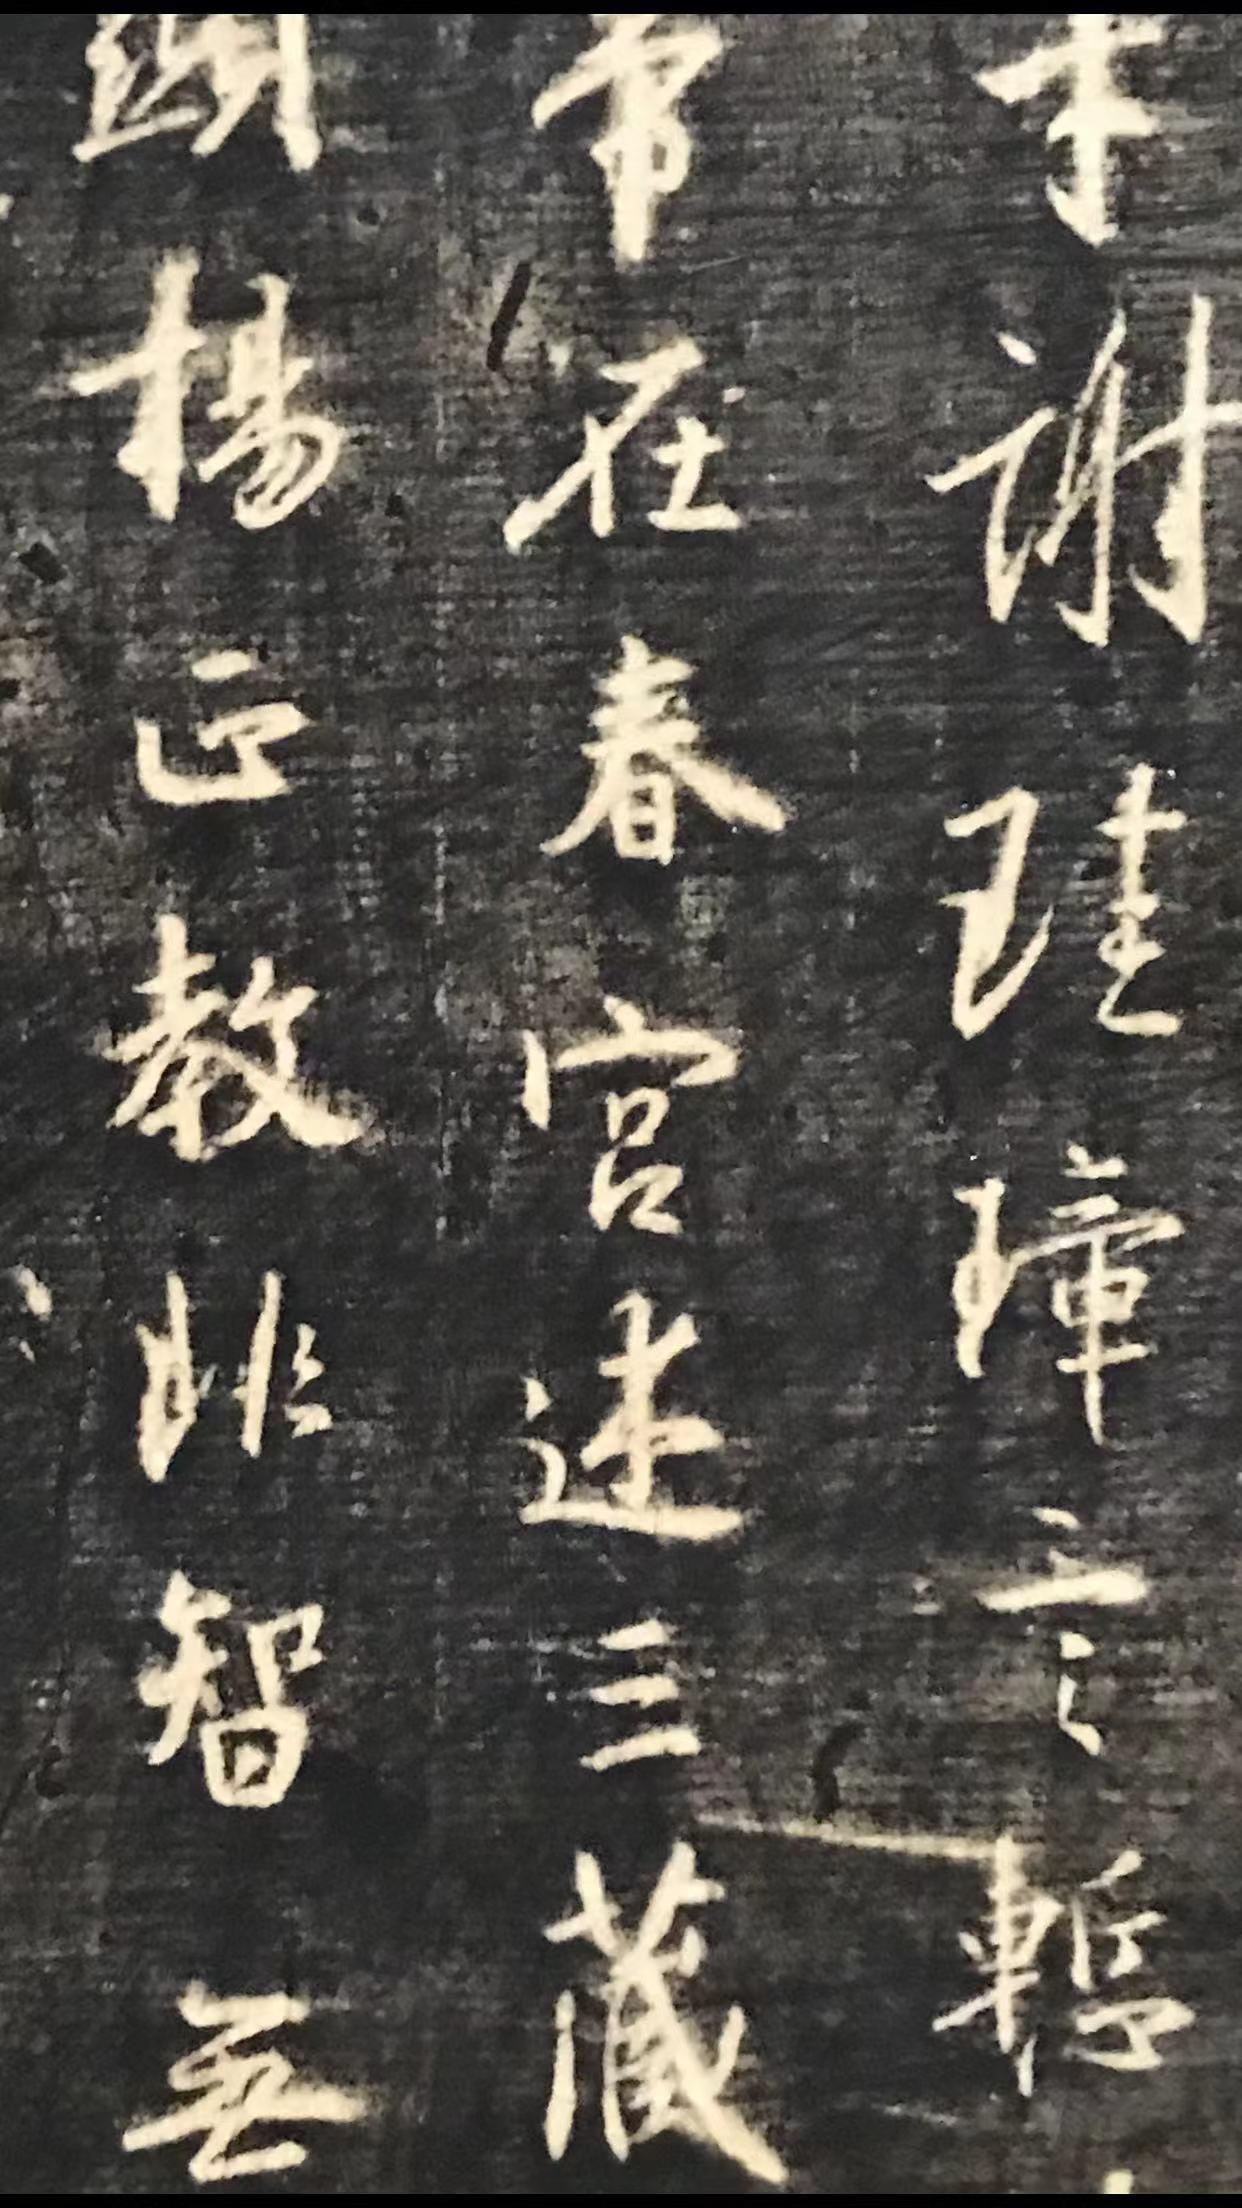 才謝珪璋言慙
帝在春宮述三藏
顯揚正教非智無